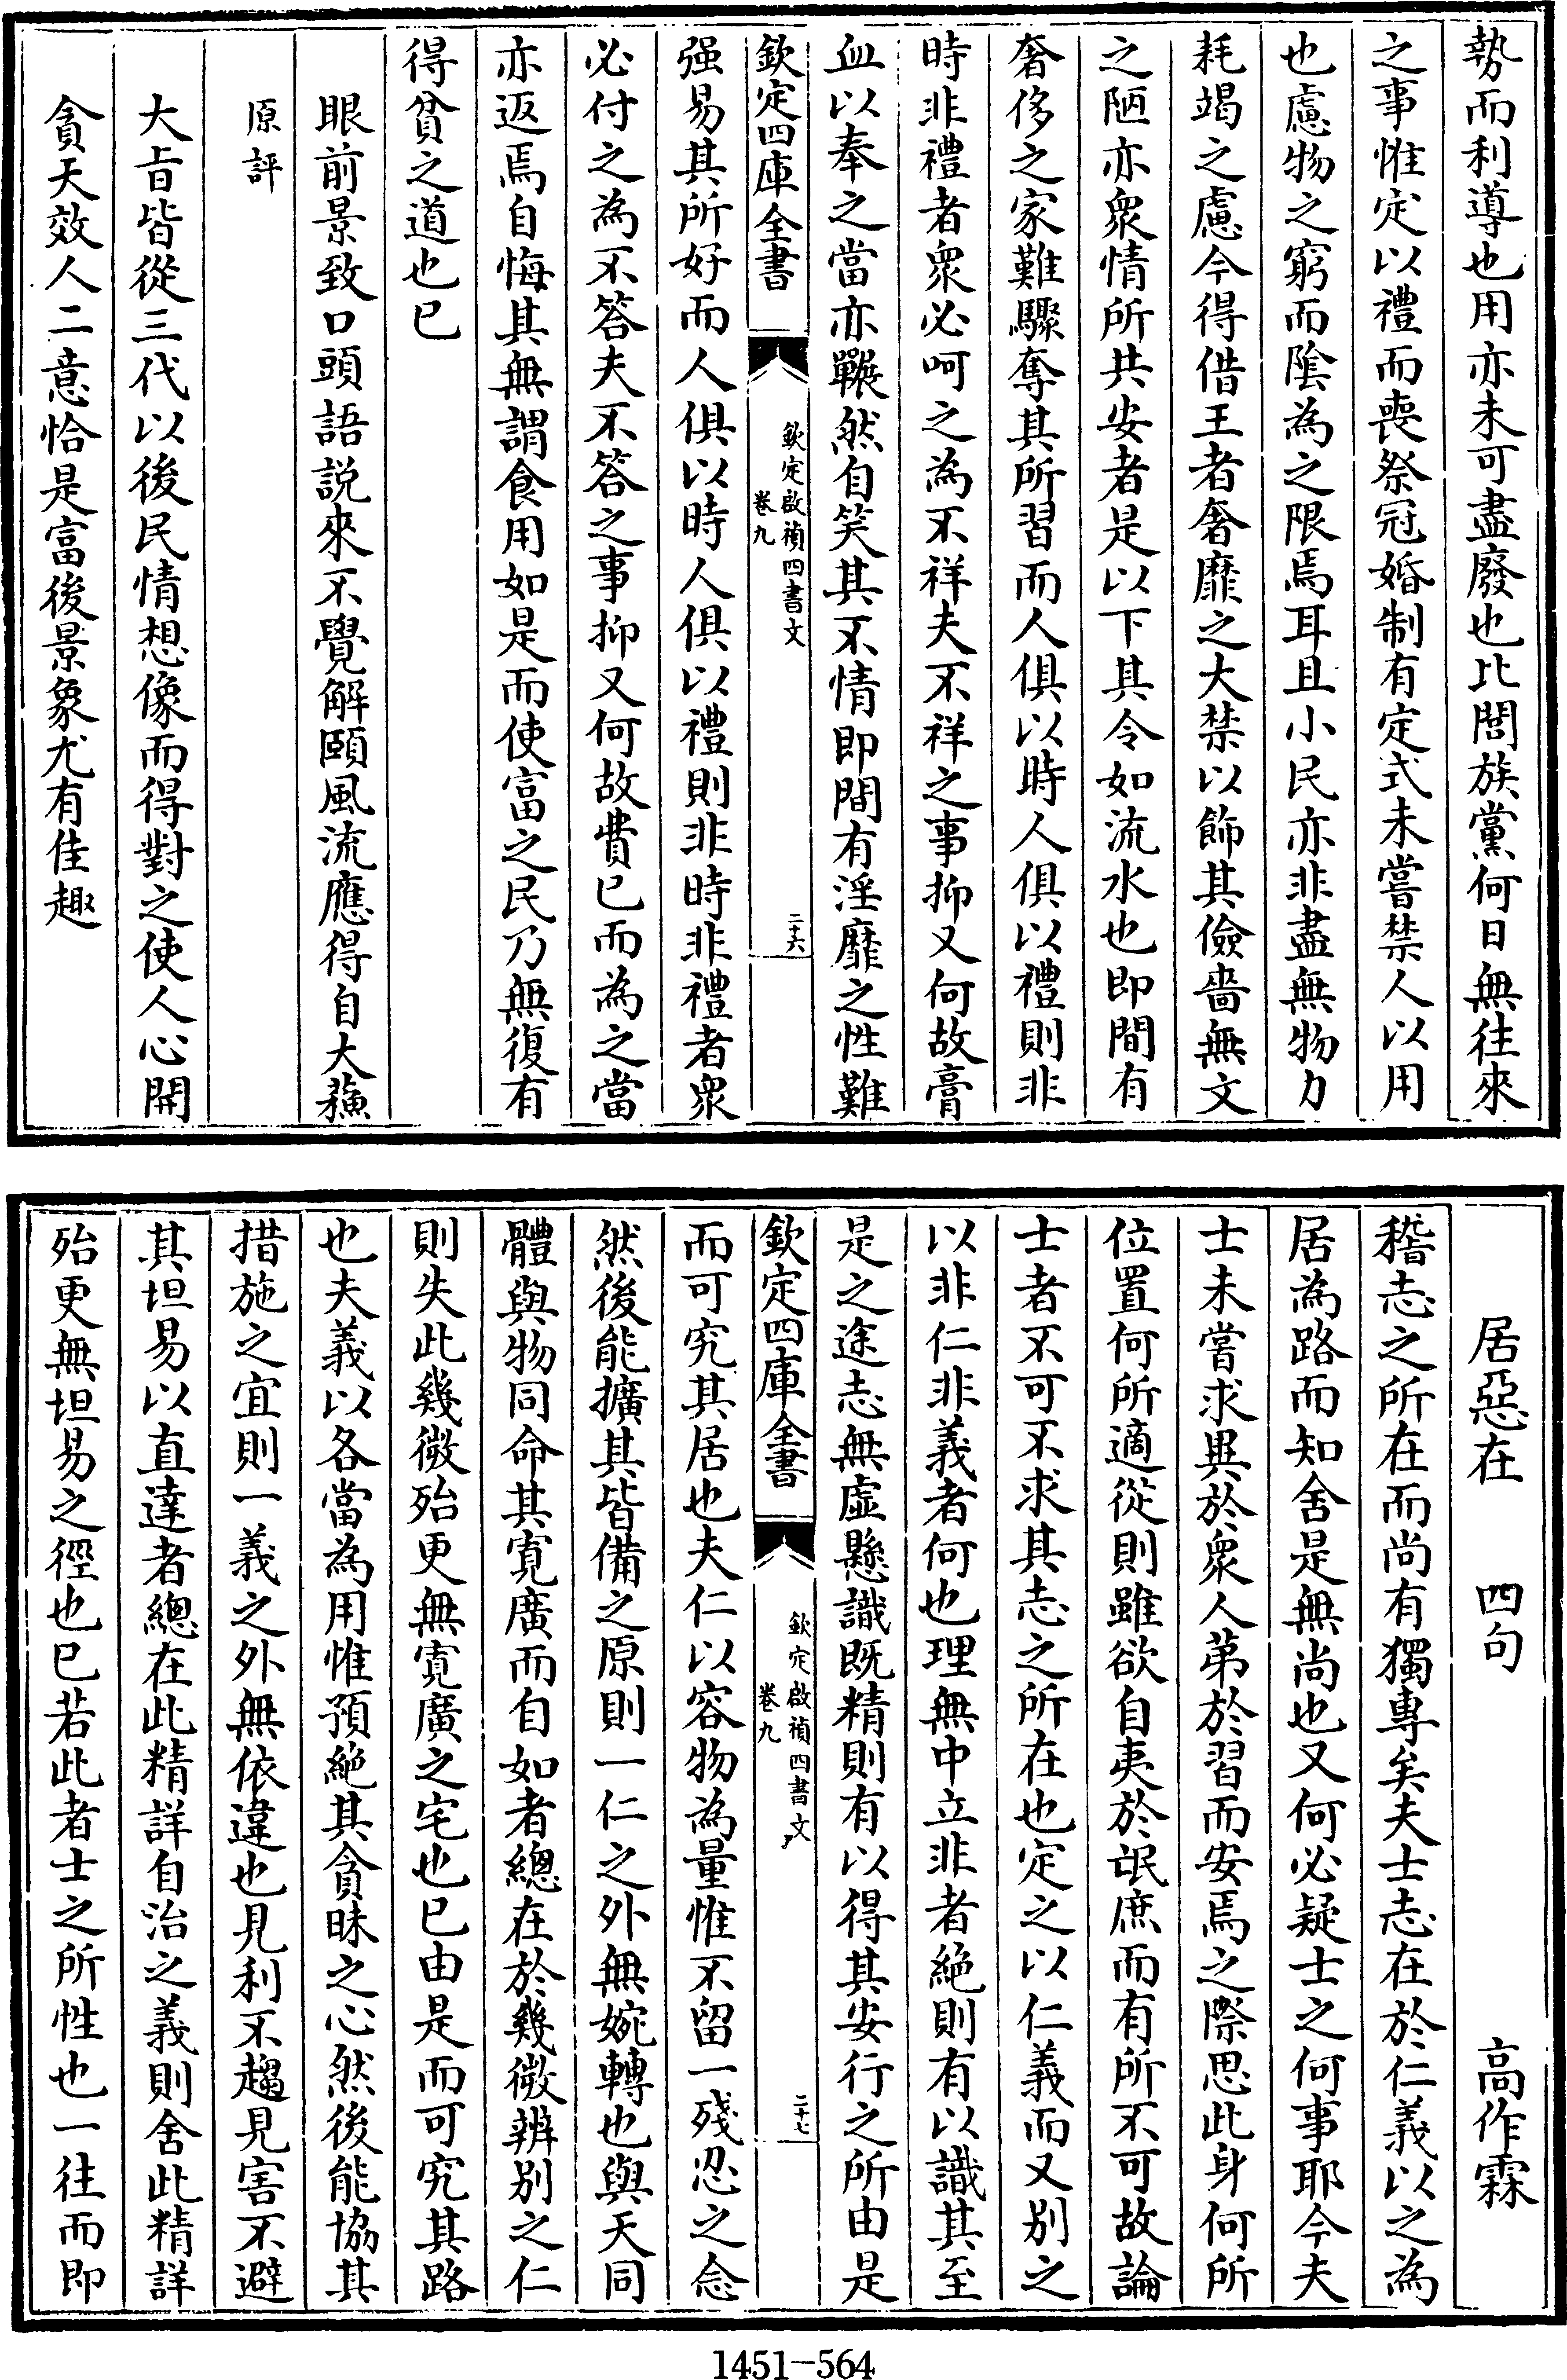 勢而利導也用亦未可盡廢也比閭族黨何日無往來
之事惟定以禮而喪祭冠婚制有定式未嘗禁人以用
也慮物之窮而隂為之限焉耳且小民亦非盡無物力
耗竭之慮今得借王者奢靡之大禁以飾其儉嗇無文
之陋亦衆情所共安者是以下其令如流水也即間有
奢侈之家難驟奪其所習而人俱以時人俱以禮則非
時非禮者衆必呵之為不祥夫不祥之事抑又何故膏
血以奉之當亦囅然自笑其不情即間有淫靡之性難
欽定四庫全書
欽定啟禎四書文
卷九
二十六
强易其所好而人俱以時人俱以禮則非時非禮者衆
必付之為不答夫不答之事抑又何故費已而為之當
亦返焉自悔其無謂食用如是而使富之民乃無復有
得貧之道也已
眼前景致口頭語説來不覺解頤風流應得自大蘓
原評
大旨皆從三代以後民情想像而得對之使人心開
貪天效人二意恰是富後景象尤有佳趣
居惡在 四句 高作霖
稽志之所在而尚有獨專矣夫士志在於仁義以之為
居為路而知舍是無尚也又何必疑士之何事耶今夫
士未嘗求異於衆人苐於習而安焉之際思此身何所
位置何所適從則雖欲自夷於氓庶而有所不可故論
士者不可不求其志之所在也定之以仁義而又别之
以非仁非義者何也理無中立非者絶則有以識其至
是之途志無虚懸識既精則有以得其安行之所由是
欽定四庫全書
欽定啟禎四書文
卷九
二十七
而可究其居也夫仁以容物為量惟不留一殘忍之念
然後能擴其皆備之原則一仁之外無婉轉也與天同
體與物同命其寛廣而自如者總在於幾微辨别之仁
則失此幾微殆更無寛廣之宅也已由是而可究其路
也夫義以各當為用惟預絶其貪昧之心然後能協其
措施之宜則一義之外無依違也見利不趨見害不避
其坦易以直達者總在此精詳自治之義則舍此精詳
殆更無坦易之徑也已若此者士之所性也一往而即
1451-564